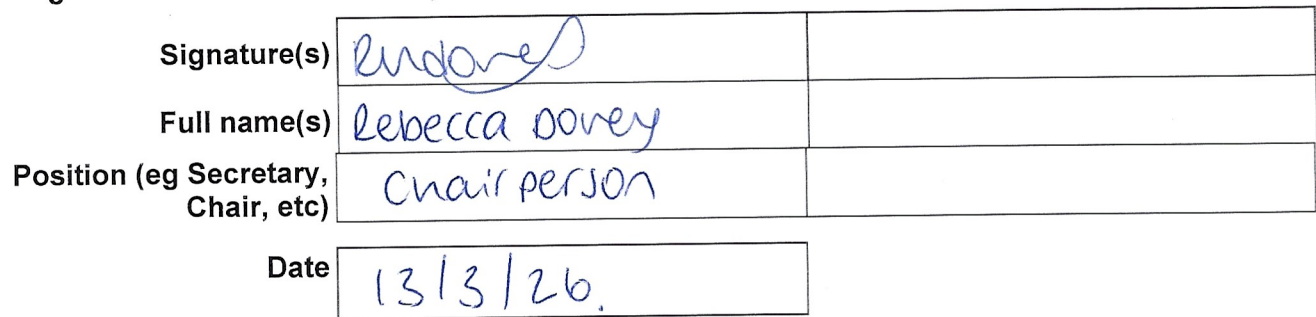 Signature(s)
Full name(s) Rebecca Dovey
Position (eg Secretary,
Chair, etc) Chairperson
Date 13/3/26.